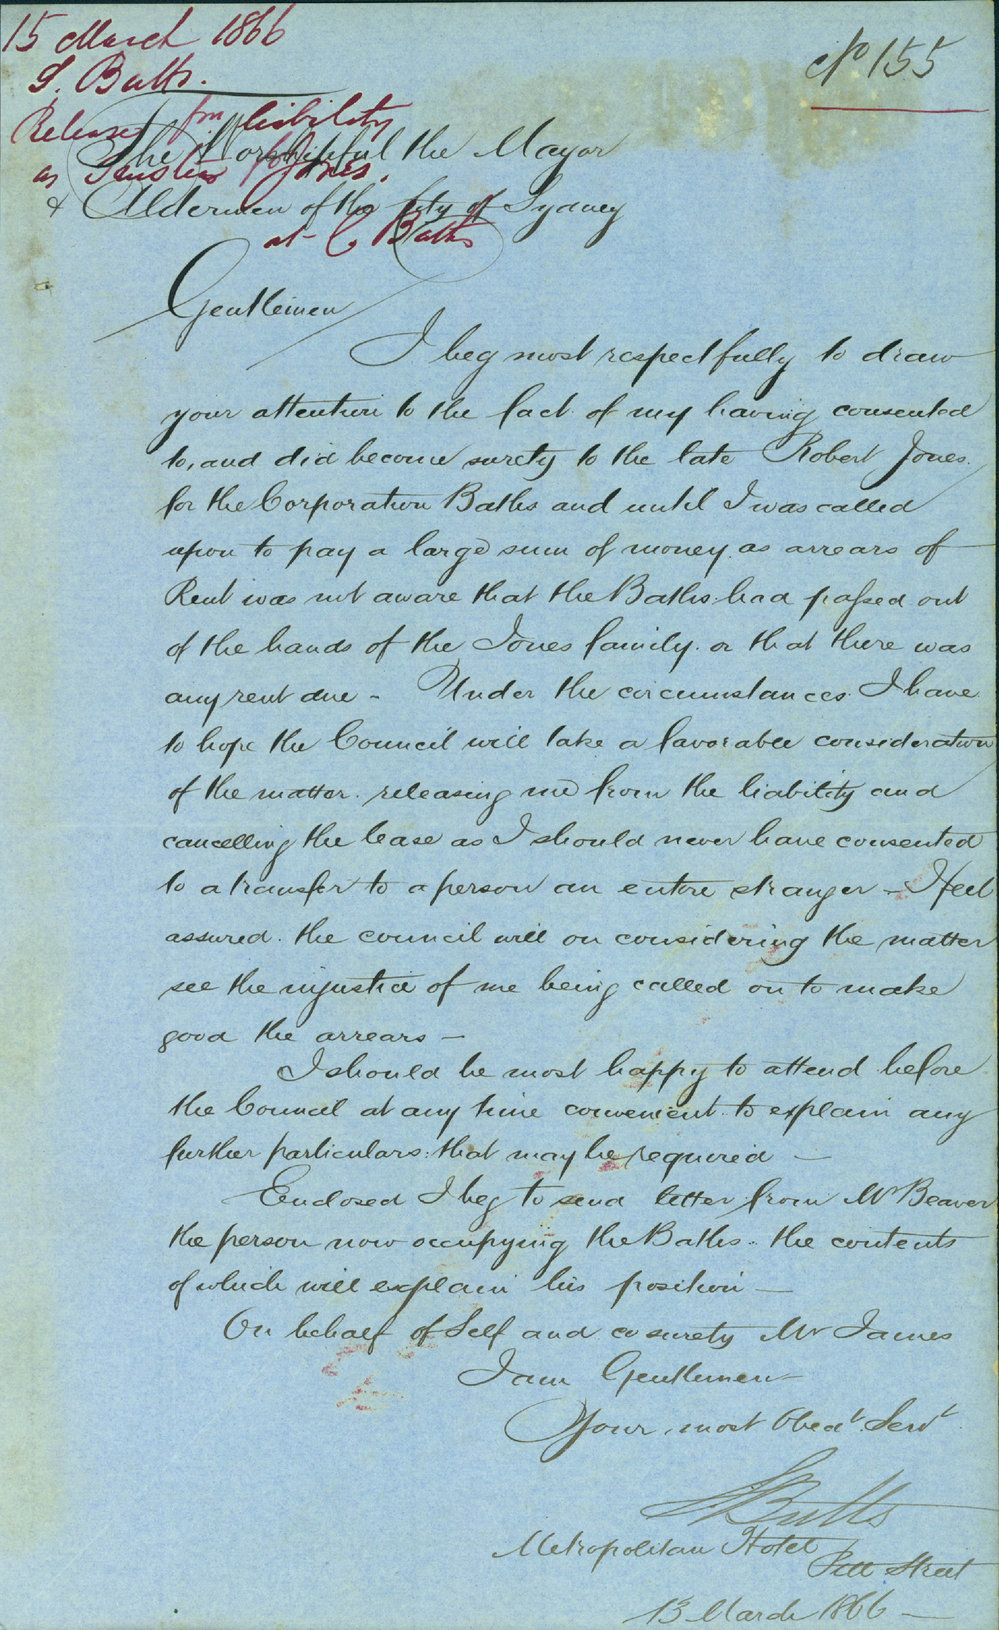 15 March 1866
S. Butts.
Release from liability
as Sureties for Jones.
at C Baths
No 155
The Worshipful the Mayor
& Aldermen of the City of Sydney
Gentlemen
I beg most respectfully to draw
your attention to the fact of my having consented
to, and did become surety to the late Robert Jones.
for the Corporation Baths and until I was called
upon to pay a large sum of money as arrears of
Rent was not aware that the Baths had passed out
of the hands of the Jones family. or that there was
any rent due - Under the circumstances I have
to hope the Council will take a favorable consideration
of the matter. releasing me from the liability and
cancelling the lease as I should never have consented
to a transfer to a person an entire stranger - I feel
assured. the council will on considering the matter
see the injustice of me being called on to make
good the arrears -
I should be most happy to attend before
the Council at any time convenient to explain any
further particulars that may be required -
Enclosed I beg to send letter from Mr Beaver
the person now occupying the Baths. the contents
of which will explain his position -
On behalf of Self and co surety Mr James
I am Gentlemen
Your most Obedt Servt
S Butts
Metropolitan Hotel
Pitt Street
13 March 1866 -